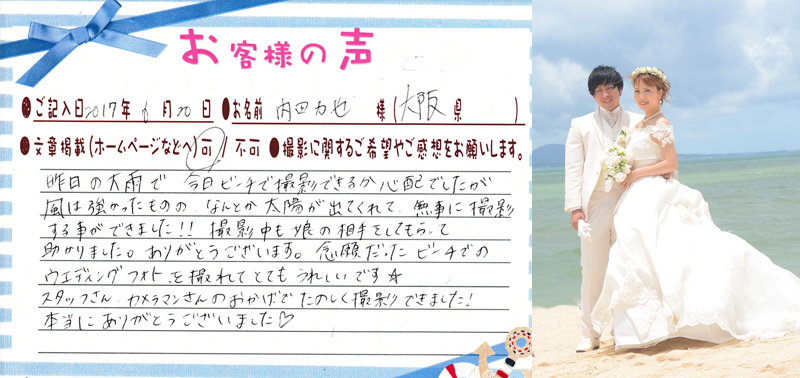 お客様の声
●ご記入日2017年6月20日 ●お名前 内田力也 様(大阪県)
●文章掲載(ホームページなどへ)可/不可 ●撮影に関するご希望やご感想をお願いします。
昨日の大雨で 今日ビーチで撮影できるか心配でしたが
風は強かったものの、なんとか太陽が出てくれて、無事に撮影
する事ができました!! 撮影中も娘の相手をしてもらって
助かりました。ありがとうございます。念願だったビーチでの
ウエディングフォトを撮れてとてもうれしいです☆
スタッフさん、カメラマンさんのおかげでたのしく撮影できました!
本当にありがとうございました♡